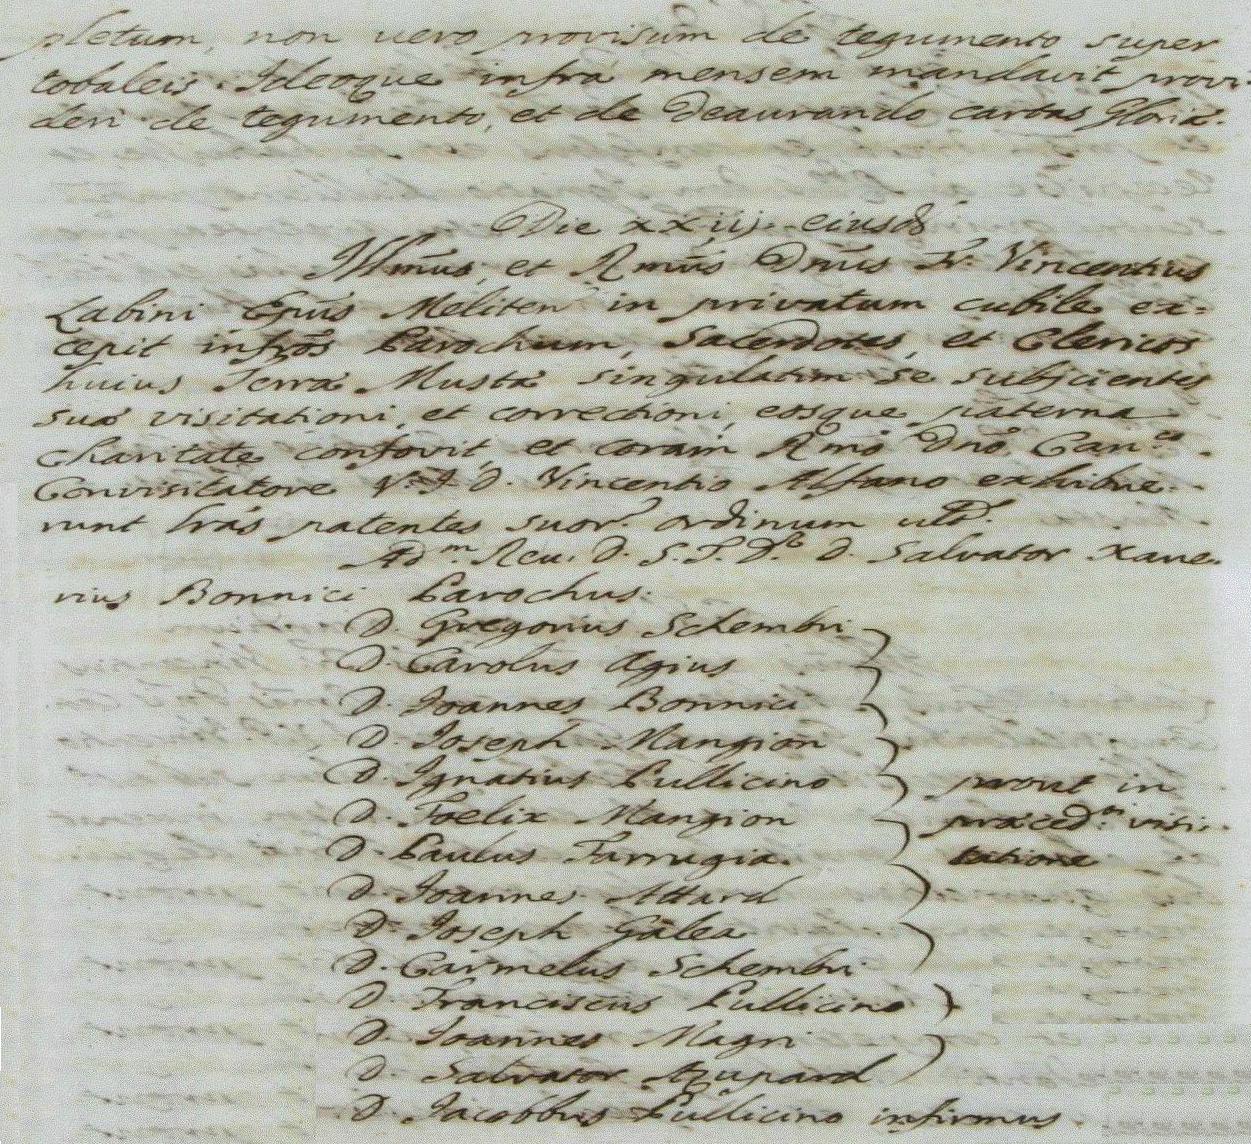 pletum, non vero provisum de tegumento super
tobaleis. Ideoque infra mensem mandavit provi-
deri de tegumento, et de deaurando cartas Gloriæ.
Die xxiij. eiusd.
Illmūs, et Rmūs Dnūs Fr. Vincentius
Labini Epūs Meliten. in privatum cubile ex-
cepit infrōs Parochum, Sacerdotes, et Clericos
huius Terræ Mustæ singulatim se subjicientes
suæ visitationi, et correctioni, eosque paterna
charitate confovit, et coram Rmō Dnō Canco
Convisitatore V. I. D. Vincentio Alfano exhibue-
runt lrās patentes suor. ordinum ult.
Adm Reu. D. S. T. Dr D. Salvator Xave-
rius Bonnici Parochus.
D. Gregorius Schembri
D. Carolus Agius
D. Joannes Bonnici
D. Joseph Mangion
D. Ignatius Pullicino prout in
D. Foelix Mangion præced. visi-
D. Paulus Farrugia tatione
D. Joannes Attard
D. Joseph Galea
D. Carmelus Schembri
D. Franciscus Pullicino
D. Joannes Magri
D. Salvator Azupard
D. Jacobbus Pullicino infirmus.